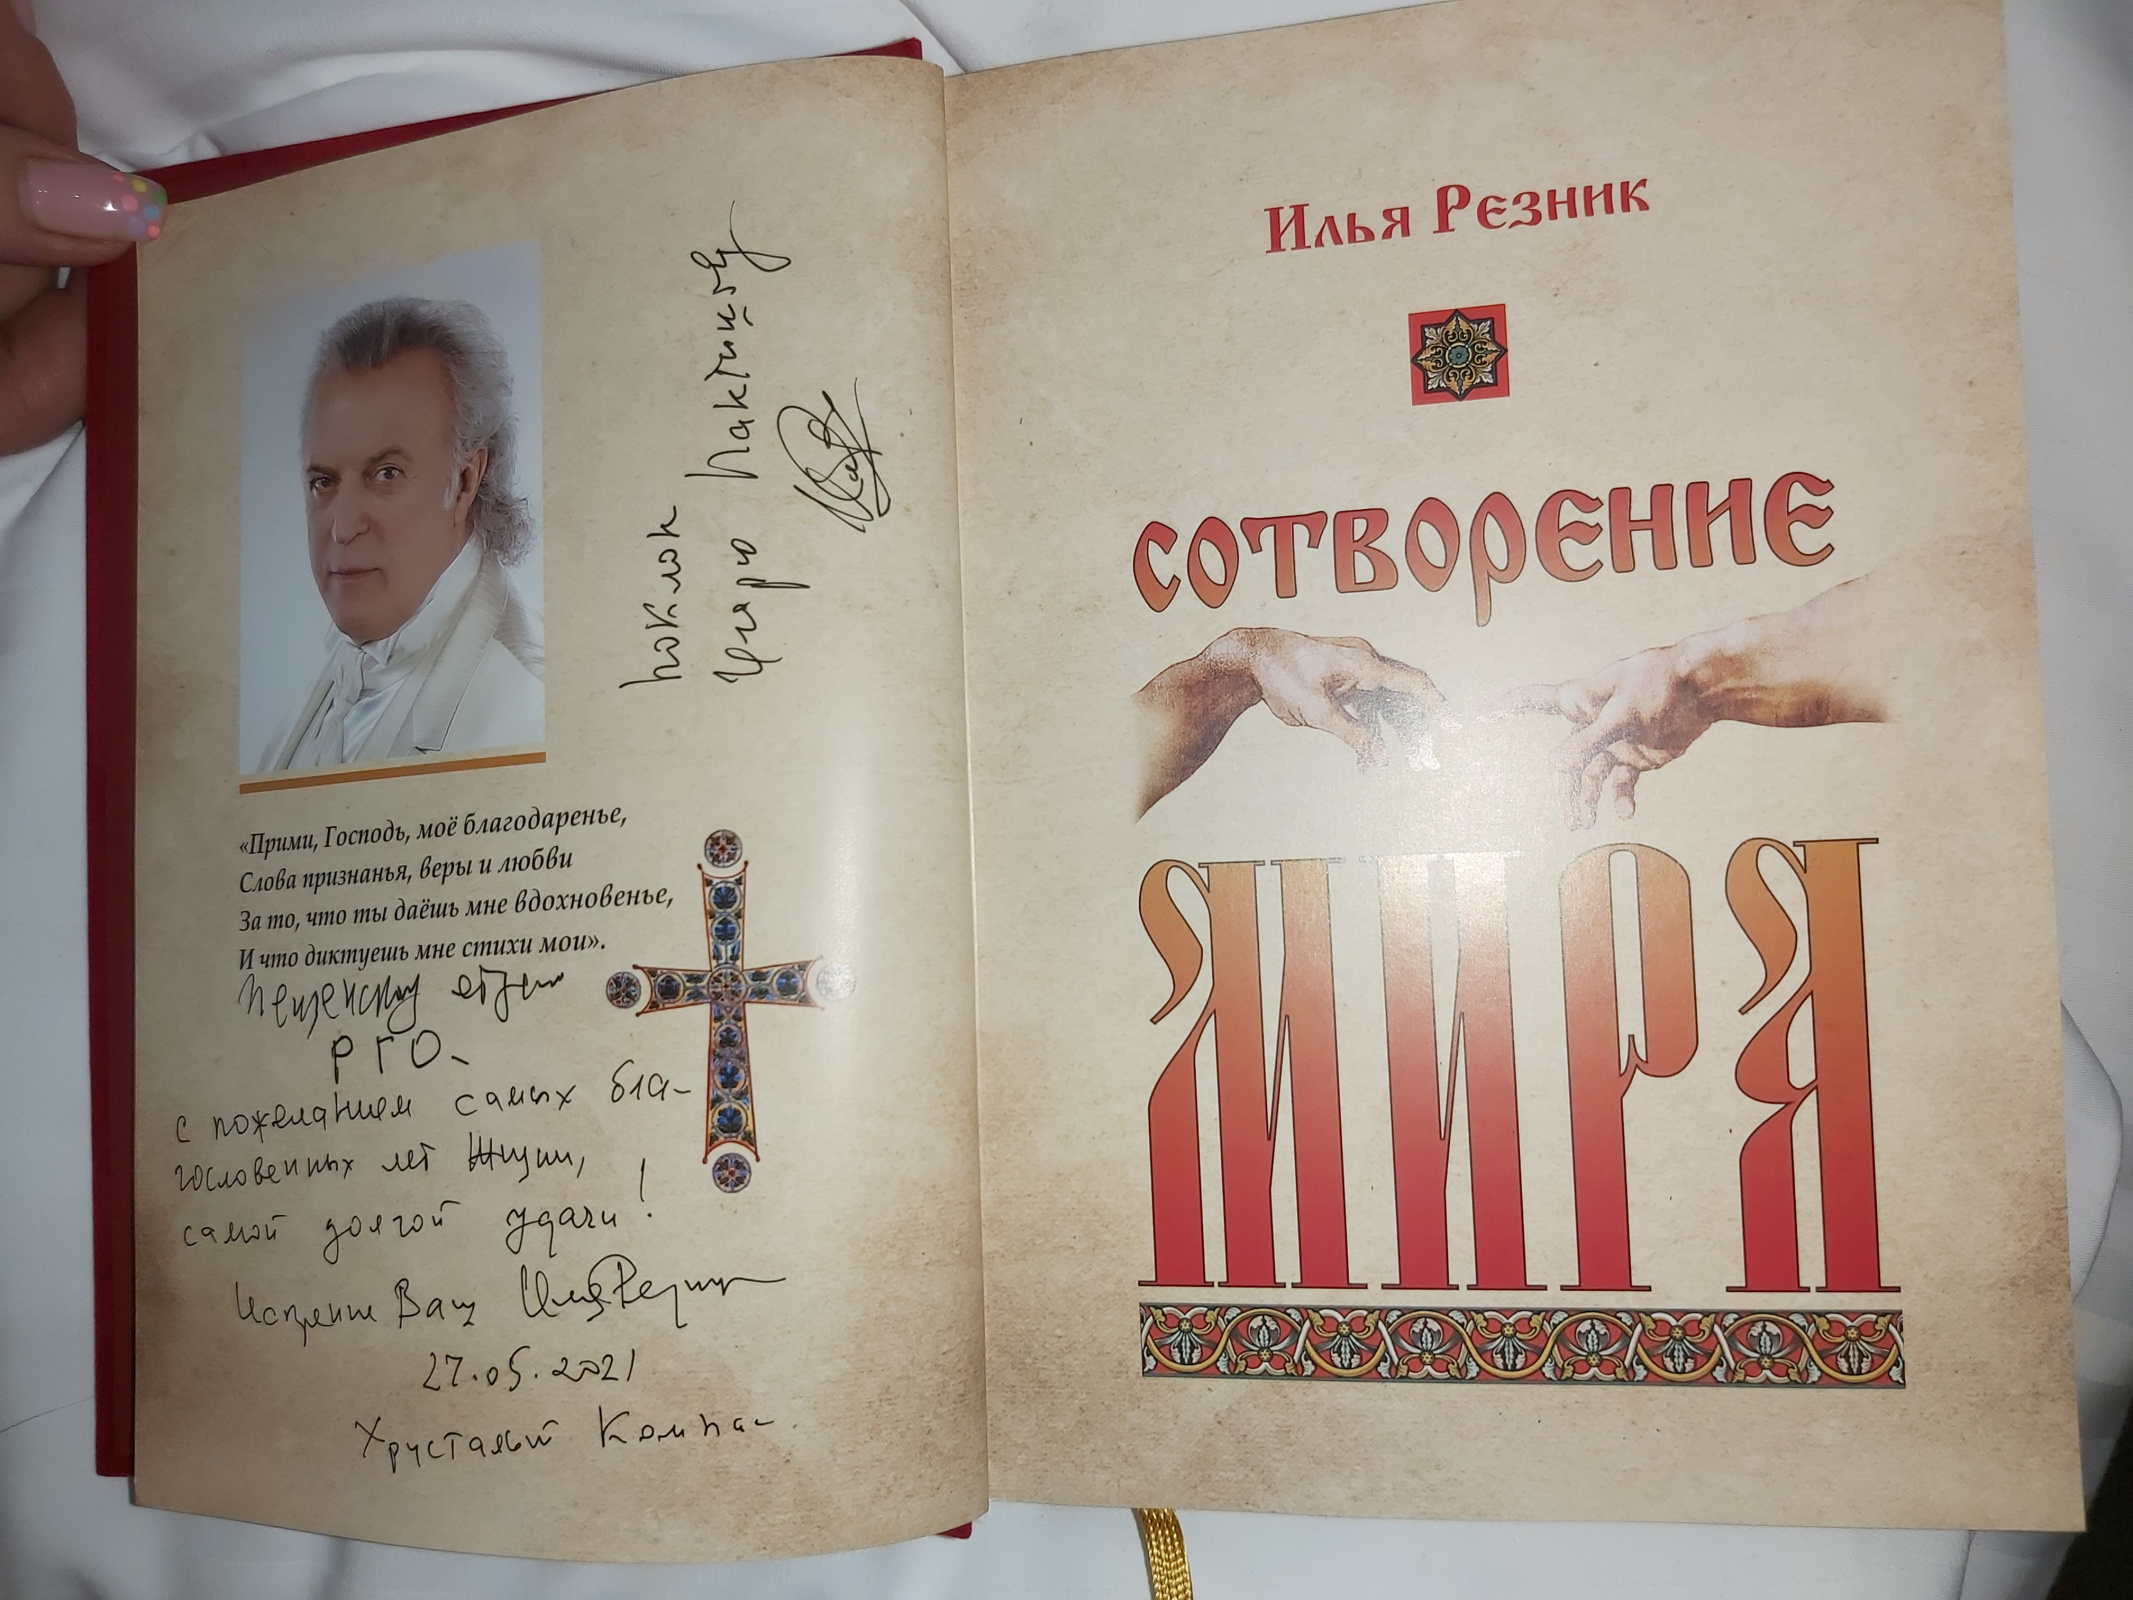 «Прими, Господь, моё благодаренье,
Слова признанья, веры и любви
За то, что ты даёшь мне вдохновенье,
И что диктуешь мне стихи мои».
РГО
с пожеланием самых бла-
гословенных лет жизни,
самой долгой удачи!
Искренне Ваш Илья Резник
27.05.2021
Хрустальный Компас
поклон
Илья Резник
СОТВОРЕНИЕ
МИРА